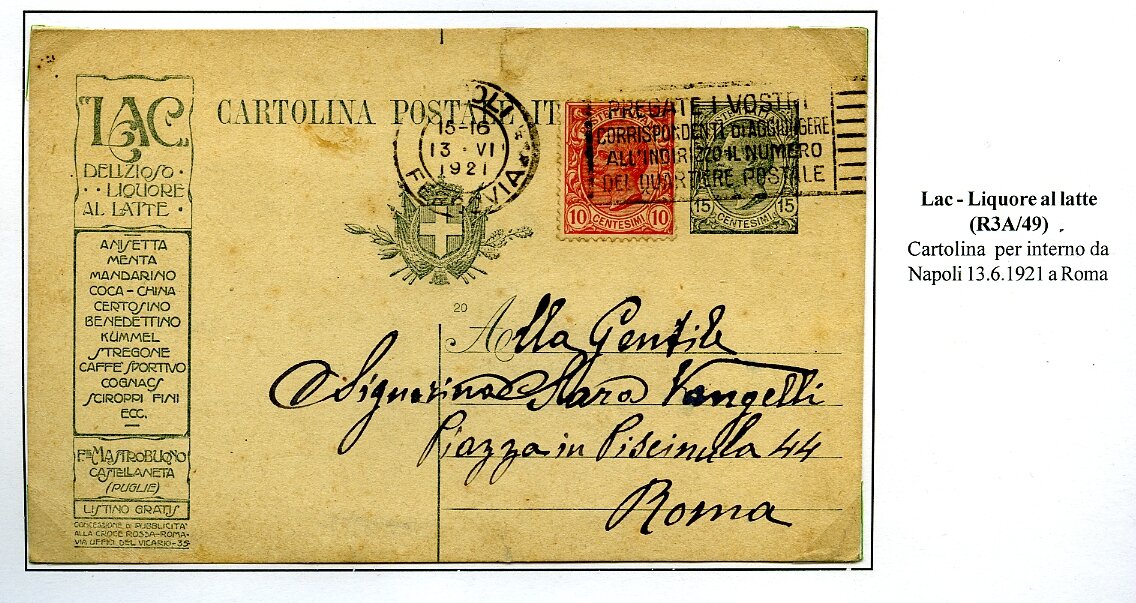 LAC
DELIZIOSO
LIQUORE
AL LATTE
ANISETTA
MENTA
MANDARINO
COCA-CHINA
CERTOSINO
BENEDETTINO
KÜMMEL
STREGONE
CAFFÈ SPORTIVO
COGNACS
SCIROPPI FINI
ECC.
F.lli MASTROBUONO
CASTELLANETA
(PUGLIE)
LISTINO GRATIS
CONCESSIONE DI PUBBLICITA'
ALLA CROCE ROSSA-ROMA-
VIA UFFICI DEL VICARIO-35
CARTOLINA POSTALE IT
15-16
13 · VI
1921
FERROVIA
PREGATE I VOSTRI
CORRISPONDENTI DI AGGIUNGERE
ALL'INDIRIZZO IL NUMERO
DEL QUARTIERE POSTALE
10 CENTESIMI 10
15 CENTESIMI 15
20
Alla Gentile
Signorina Sara Vangelli
Piazza in Piscinula 44
Roma
Lac - Liquore al latte
(R3A/49)
Cartolina per interno da
Napoli 13.6.1921 a Roma